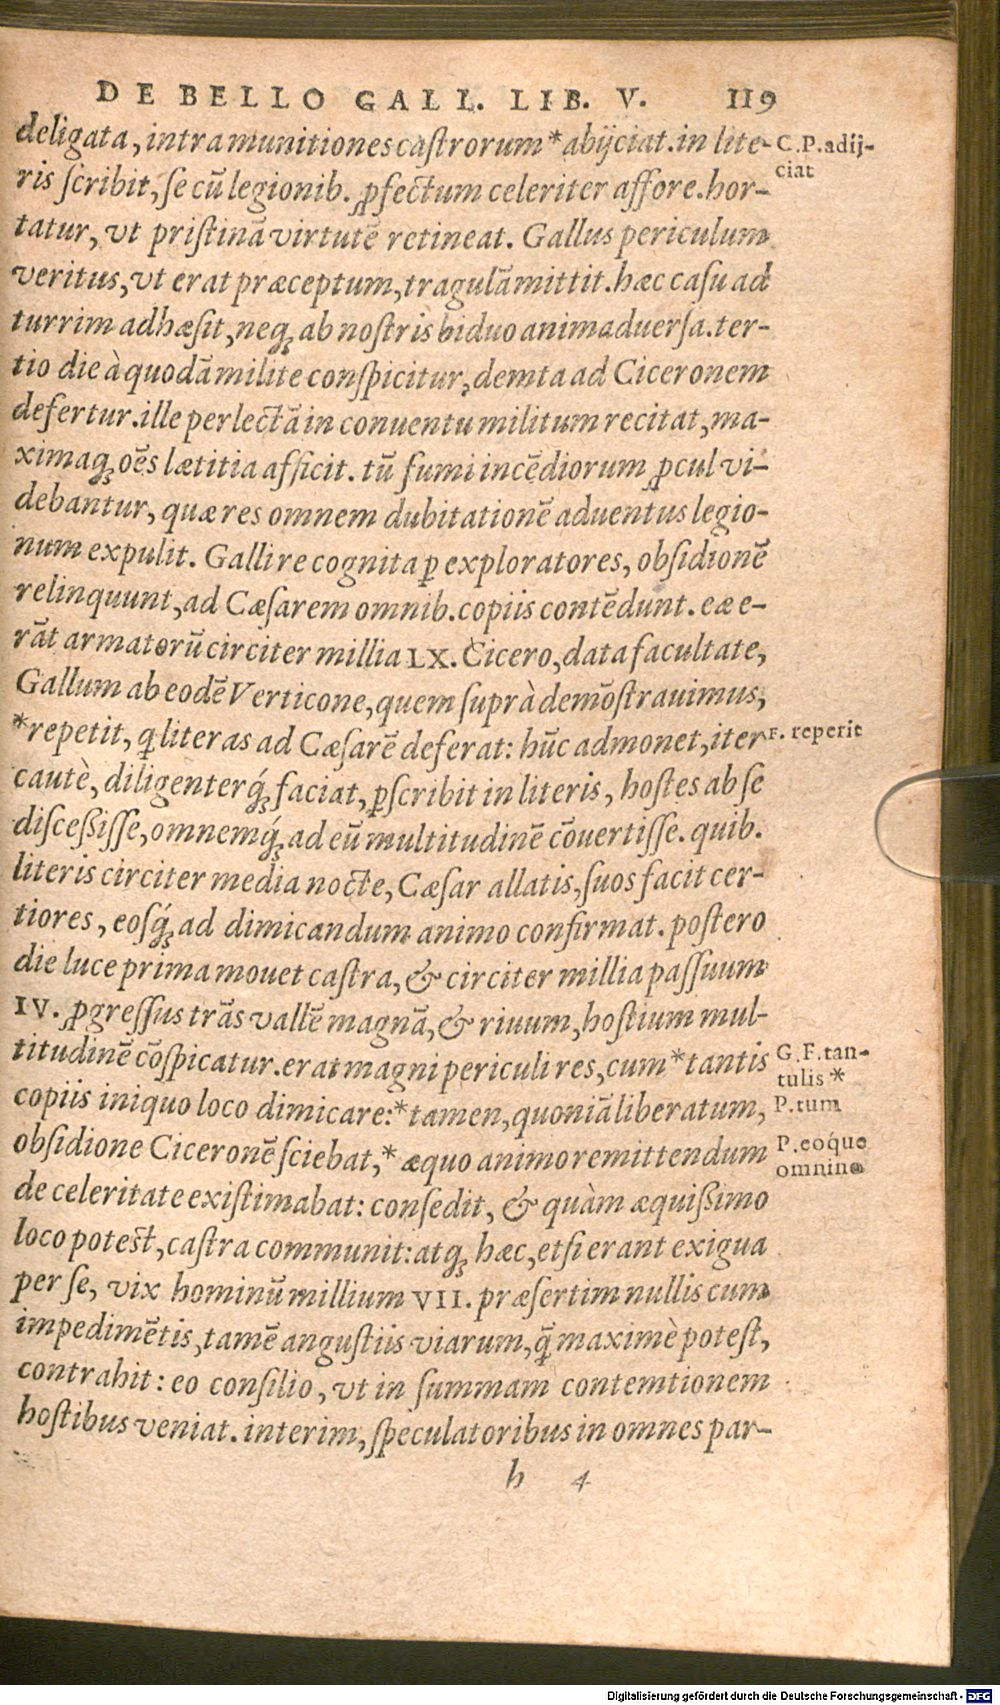 DE BELLO GALL. LIB. V. 119
deligata, intra munitiones castrorum * abijciat. in lite-
C. P. adij-
ciat
ris scribit, se cū legionib. ꝓfectum celeriter affore. hor-
tatur, vt pristinā virtutē retineat. Gallus periculum
veritus, vt erat præceptum, tragulā mittit. hæc casu ad
turrim adhæsit, neqꝫ ab nostris biduo animaduersa. ter-
tio die à quodā milite conspicitur, demta ad Ciceronem
defertur. ille perlectā in conuentu militum recitat, ma-
ximaqꝫ oēs lætitia afficit. tū fumi incēdiorum ꝓcul vi-
debantur, quæ res omnem dubitationē aduentus legio-
num expulit. Galli re cognita ꝑ exploratores, obsidionē
relinquunt, ad Cæsarem omnib. copiis contēdunt. eæ e-
rāt armatorū circiter millia LX. Cicero, data facultate,
Gallum ab eodē Verticone, quem suprà demōstrauimus,
* repetit, q literas ad Cæsarē deferat: hūc admonet, iter
F. reperit
cautè, diligenterqꝫ́ faciat, ꝑscribit in literis, hostes ab se
discessisse, omnemqꝫ́ ad eū multitudinē cōuertisse. quib.
literis circiter media nocte, Cæsar allatis, suos facit cer-
tiores, eosqꝫ́ ad dimicandum animo confirmat. postero
die luce prima mouet castra, & circiter millia passuum
IV. ꝓgressus trās vallē magnā, & riuum, hostium mul-
titudinē cōspicatur. erat magni periculi res, cum * tantis
G. F. tan-
tulis *
copiis iniquo loco dimicare: * tamen, quoniā liberatum,
P. tum
obsidione Ciceronē sciebat, * æquo animo remittendum
P. eoque
omnino
de celeritate existimabat: consedit, & quàm æquissimo
loco potest, castra communit: atqꝫ hæc, etsi erant exigua
per se, vix hominū millium VII. præsertim nullis cum
impedimētis, tamē angustiis viarum, q̄ maximè potest,
contrahit: eo consilio, vt in summam contemtionem
hostibus veniat. interim, speculatoribus in omnes par-
h 4
Digitalisierung gefördert durch die Deutsche Forschungsgemeinschaft - DFG